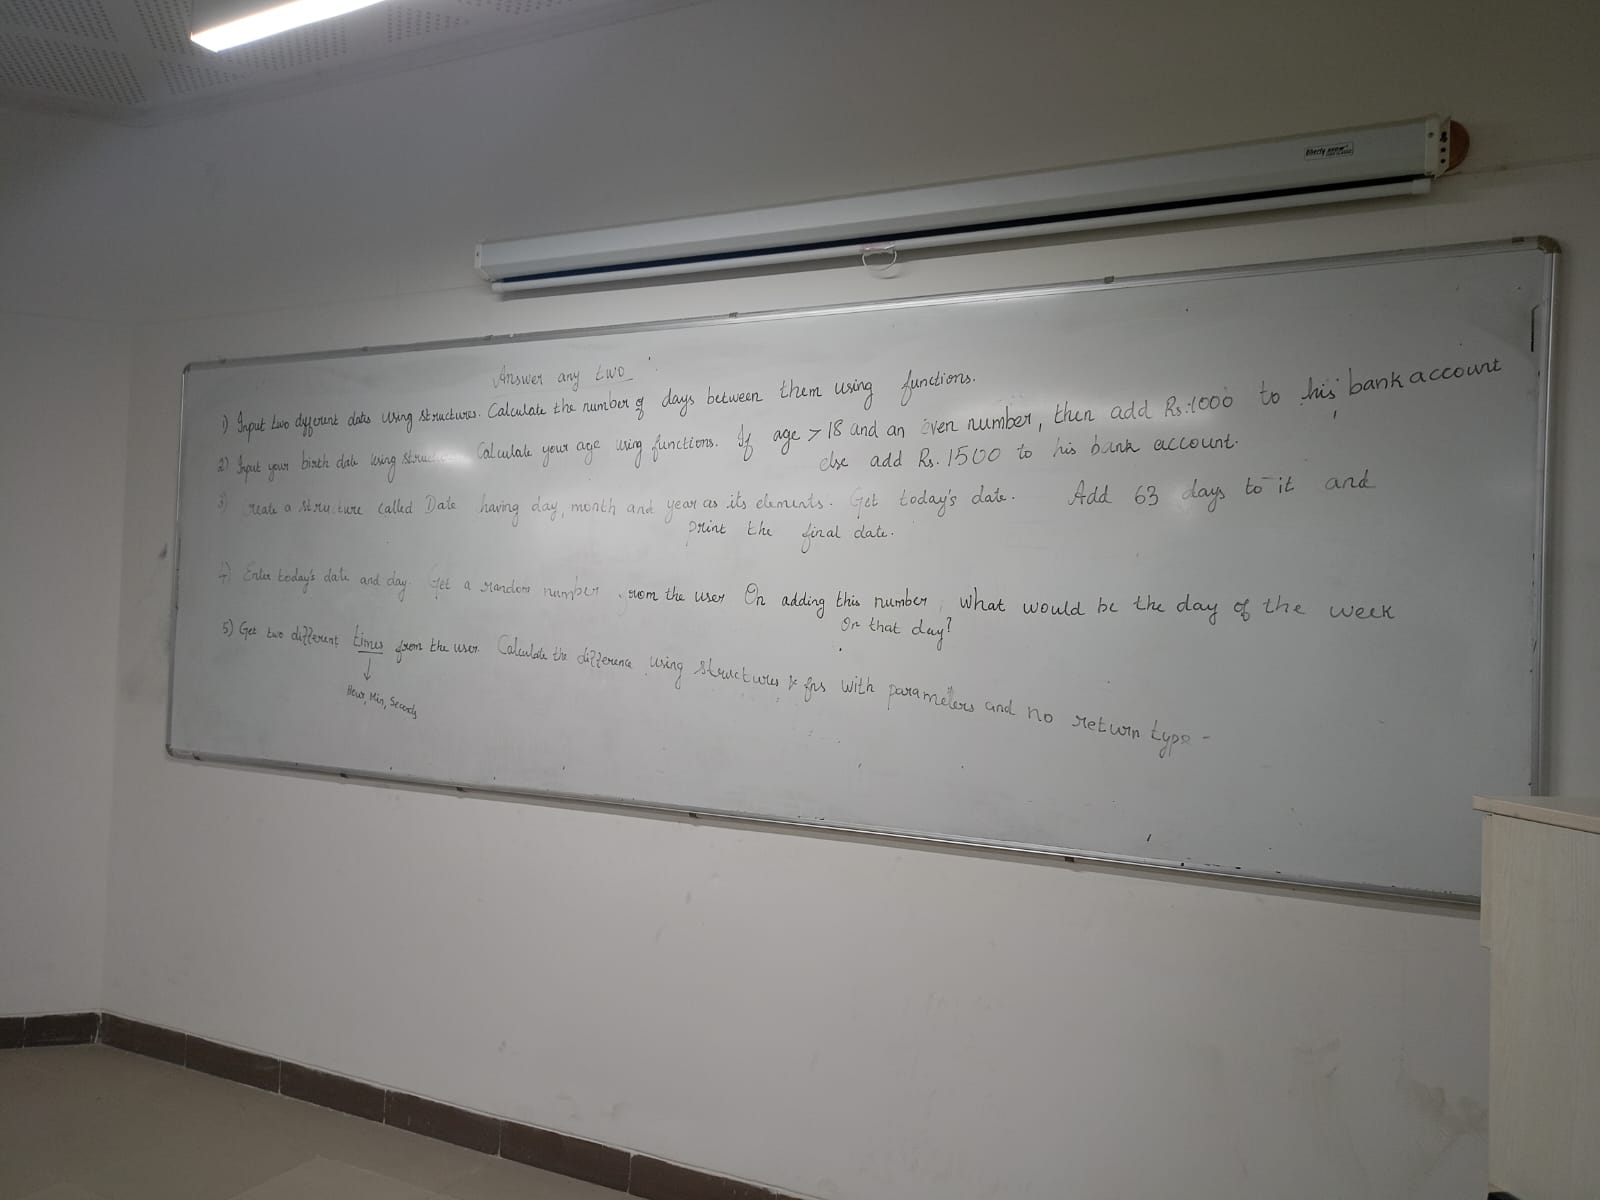 Answer any two
1) Input two different dates using structures. Calculate the number of days between them using functions.
2) Input your birth date using Calculate your age using functions. If age > 18 and an even number, then add Rs.1000 to his bank account
else add Rs. 1500 to his bank account.
3) reate a structure called Date having day, month and year as its elements. Get today's date. Add 63 days to it and
print the final date.
4) Enter today's date and day. Get a random number from the user On adding this number, what would be the day of the week
On that day?
5) Get two different times from the user. Calculate the difference using structures & fns with parameters and no return type -
Hour, Min, Seconds